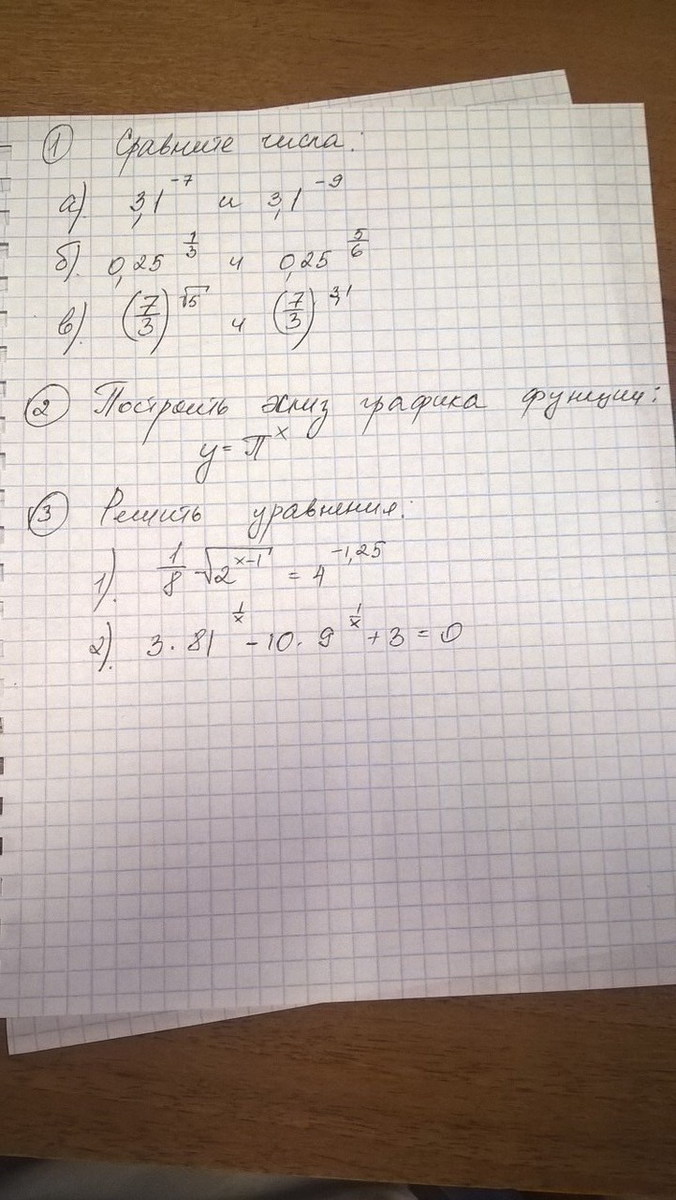 ① Сравните числа:
а). 3,1^-7 и 3,1^-9
б). 0,25^1/3 и 0,25^5/6
в). (7/3)^√5 и (7/3)^3,1
② Построить эскиз графика функции:
y = π^x
③ Решить уравнения:
1). 1/8 √2^x-1 = 4^-1,25
2). 3 · 81^1/x - 10 · 9^1/x + 3 = 0